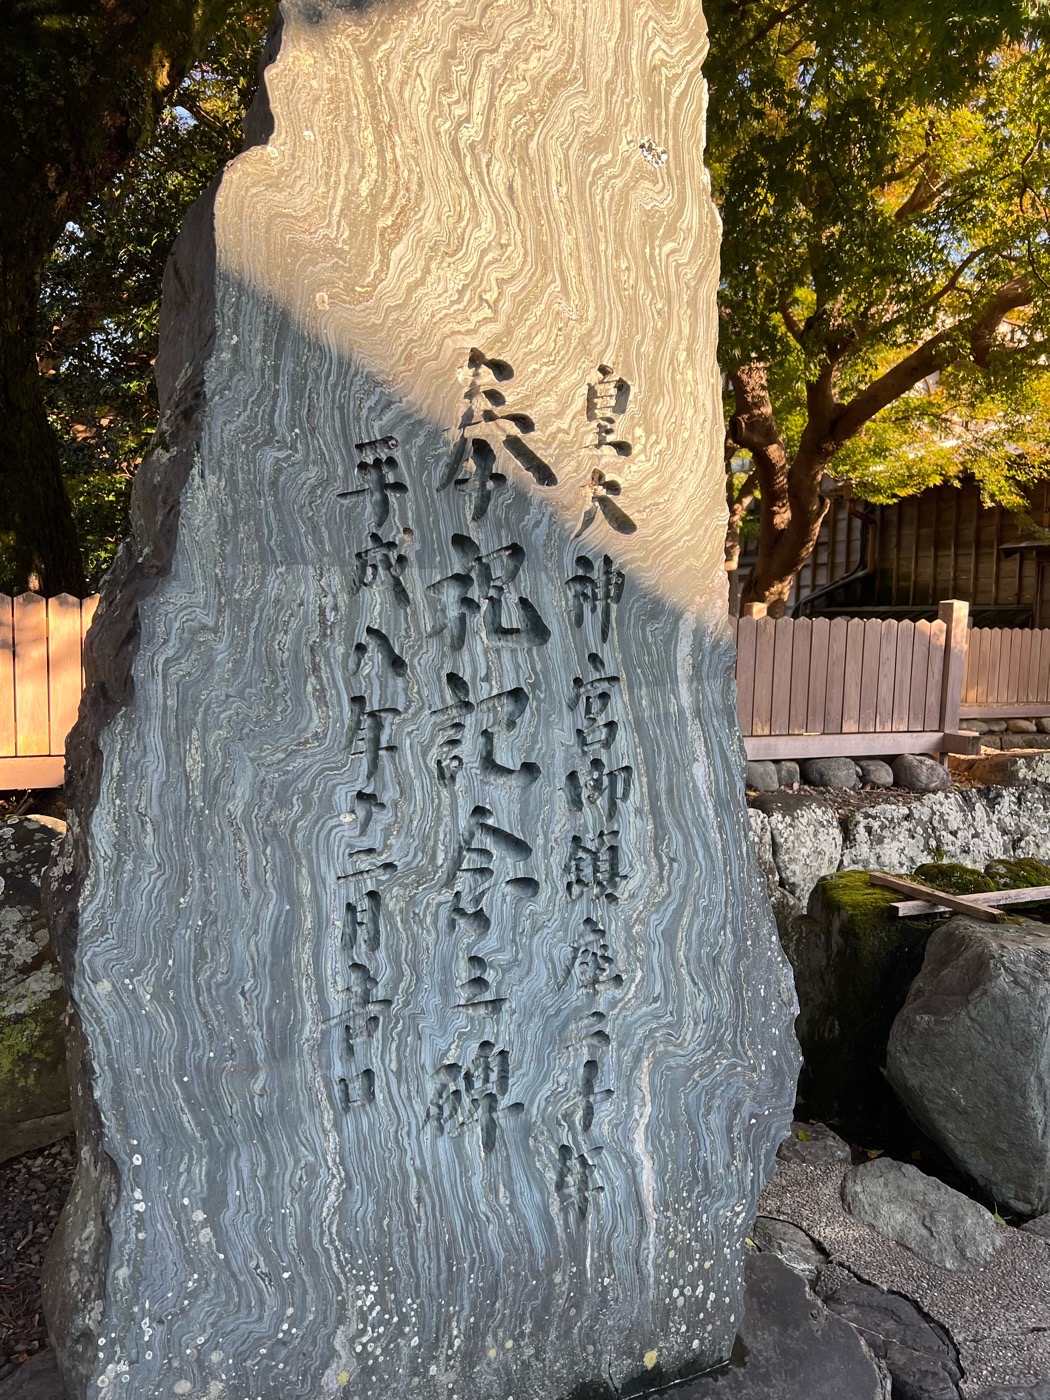 皇大神宮御鎮座二千年
奉祝記念之碑
平成八年十二月吉日